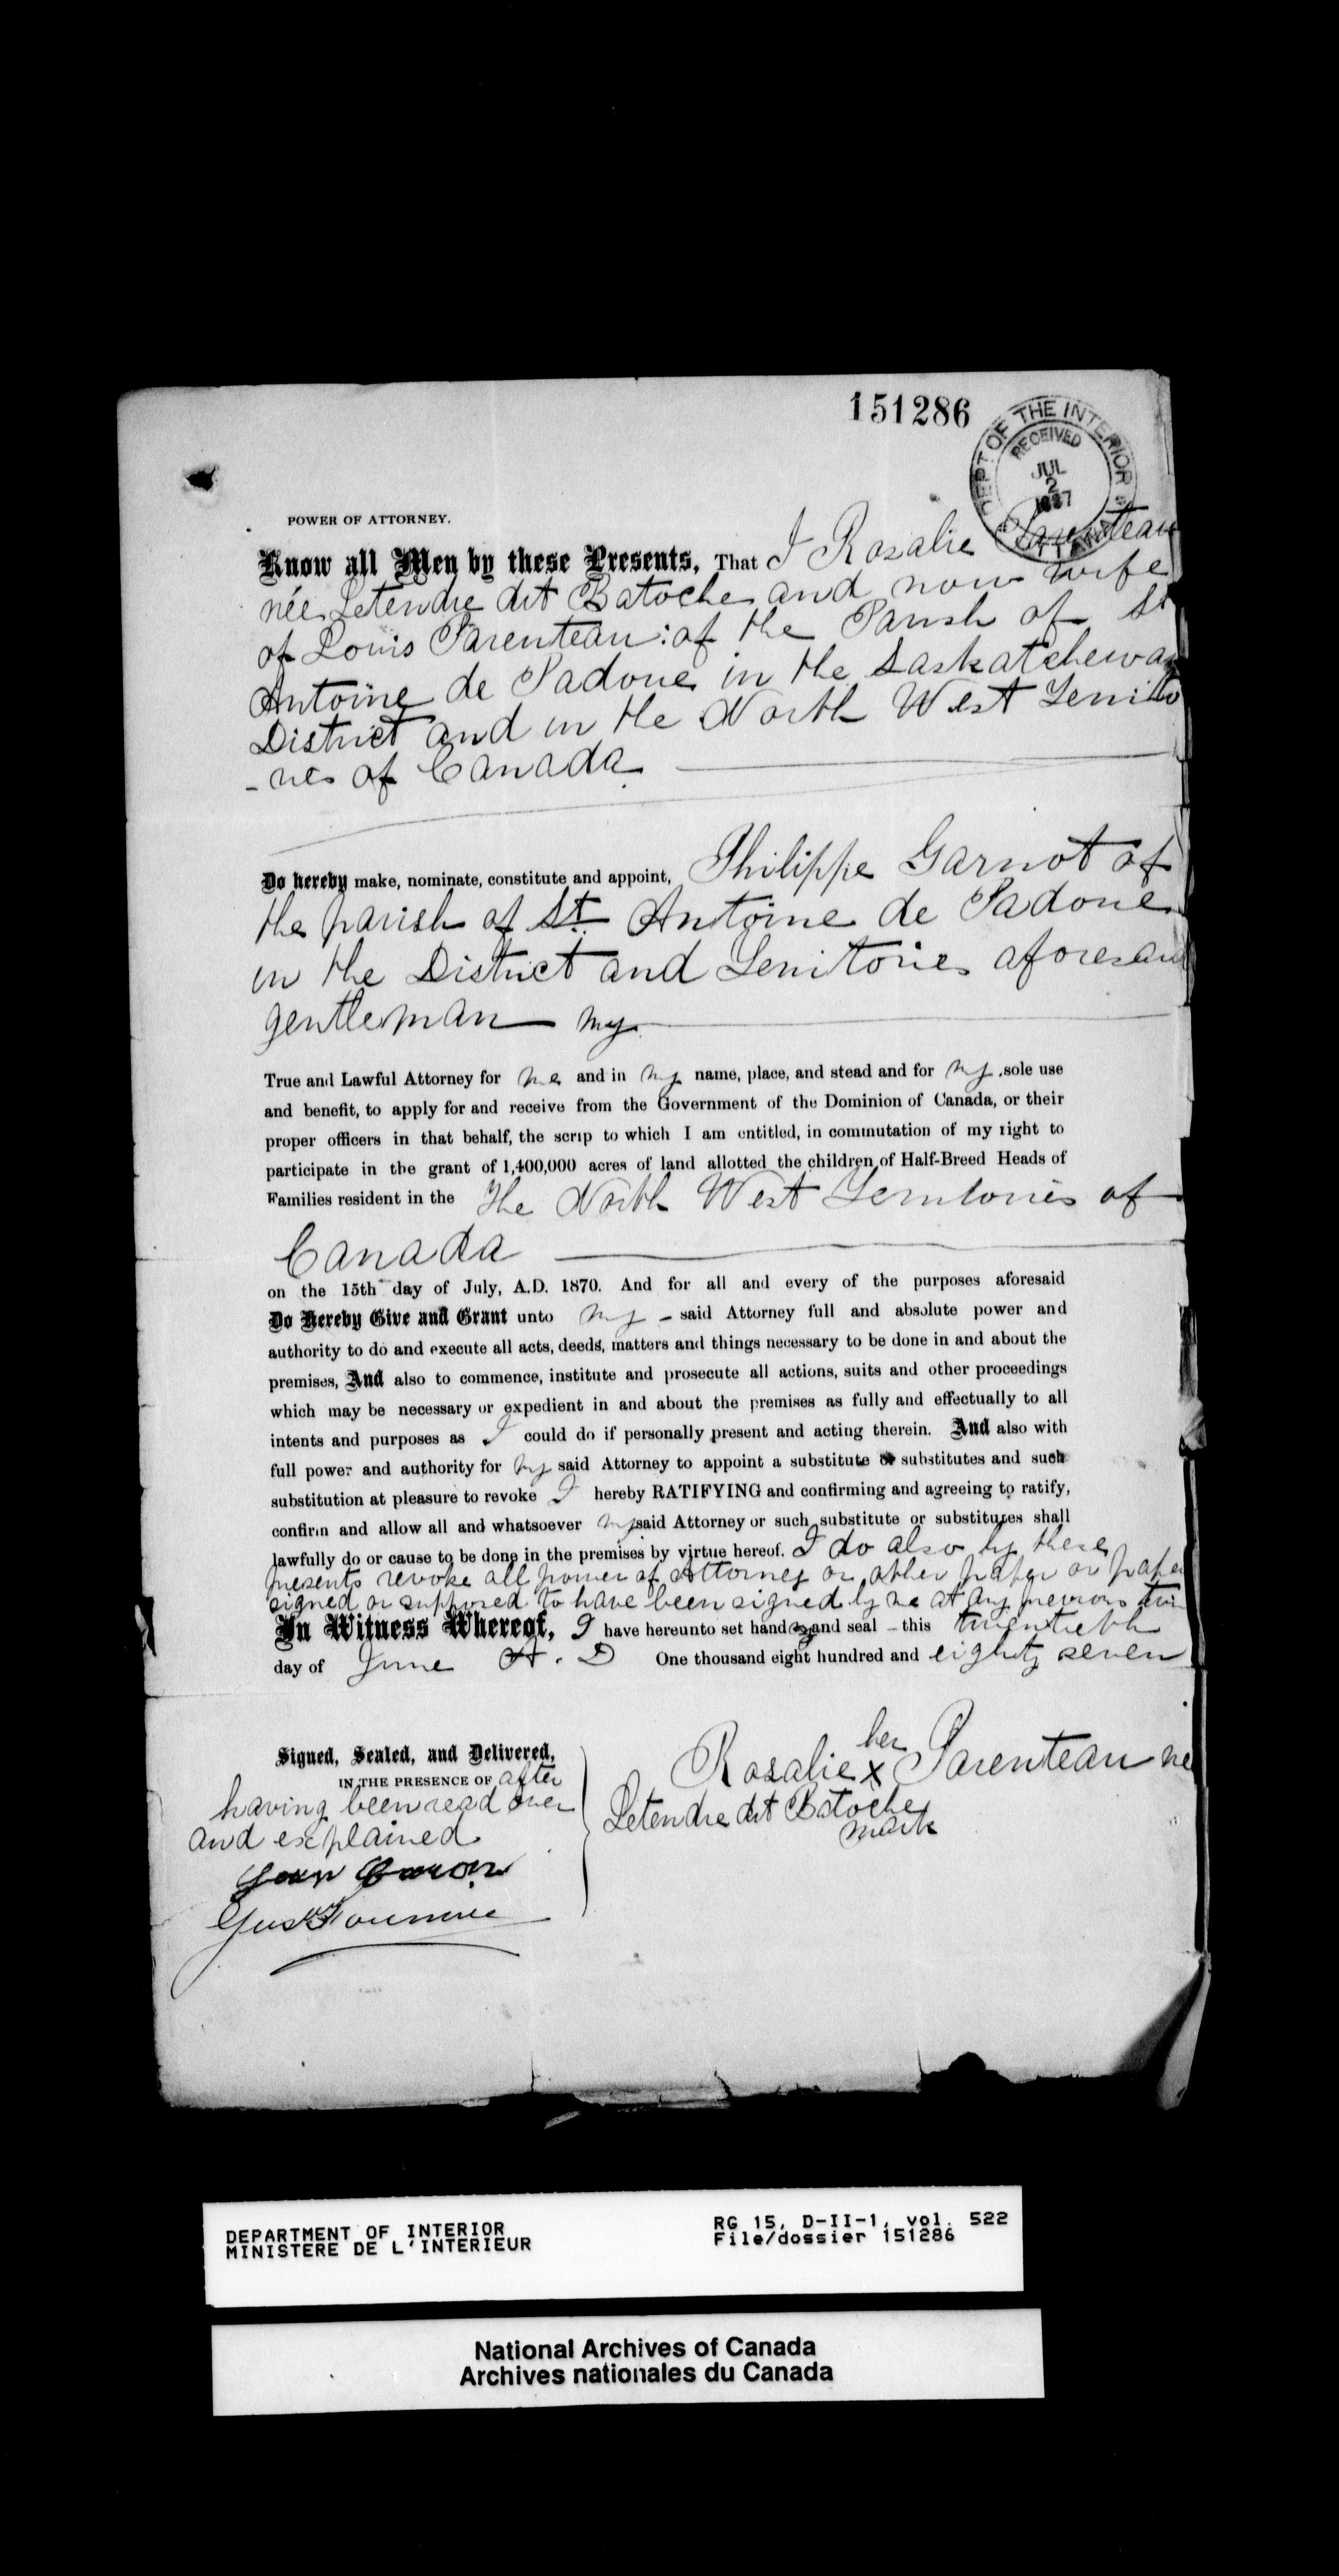 151286
DEPT OF THE INTERIOR
RECEIVED
JUL
2
1887
OTTAWA
POWER OF ATTORNEY.
Know all Men by these Presents, That I Rosalie Parenteau
née Letendre dit Batoche and now wife
of Louis Parenteau: of the Parish of St
Antoine de Padoue in the Saskatchewan
District and in the North West Territo
- ries of Canada
Do hereby make, nominate, constitute and appoint, Philippe Garnot of
the parish of St. Antoine de Padoue
in the District and Territories aforesaid
gentleman my
True and Lawful Attorney for me and in my name, place, and stead and for my sole use
and benefit, to apply for and receive from the Government of the Dominion of Canada, or their
proper officers in that behalf, the scrip to which I am entitled, in commutation of my right to
participate in the grant of 1,400,000 acres of land allotted the children of Half-Breed Heads of
Families resident in the The North West Territories of
Canada
on the 15th day of July, A.D. 1870. And for all and every of the purposes aforesaid
Do Hereby Give and Grant unto my - said Attorney full and absolute power and
authority to do and execute all acts, deeds, matters and things necessary to be done in and about the
premises, And also to commence, institute and prosecute all actions, suits and other proceedings
which may be necessary or expedient in and about the premises as fully and effectually to all
intents and purposes as I could do if personally present and acting therein. And also with
full power and authority for my said Attorney to appoint a substitute or substitutes and such
substitution at pleasure to revoke I hereby RATIFYING and confirming and agreeing to ratify,
confirm and allow all and whatsoever my said Attorney or such substitute or substitutes shall
lawfully do or cause to be done in the premises by virtue hereof. I do also by these
presents revoke all power of Attorney or other paper or paper
signed or supposed to have been signed by me at any previous tim
In Witness Whereof, I have hereunto set hand my and seal - this twentieth
day of June A. D One thousand eight hundred and eighty seven
Signed, Sealed, and Delivered,
IN THE PRESENCE OF after
having been read over
and explained
Jean Caron
Gus
her
Rosalie x Parenteau né
Letendre dit Batoche
mark
DEPARTMENT OF INTERIOR
MINISTERE DE L'INTERIEUR
RG 15, D-II-1, vol. 522
File/dossier 151286
National Archives of Canada
Archives nationales du Canada